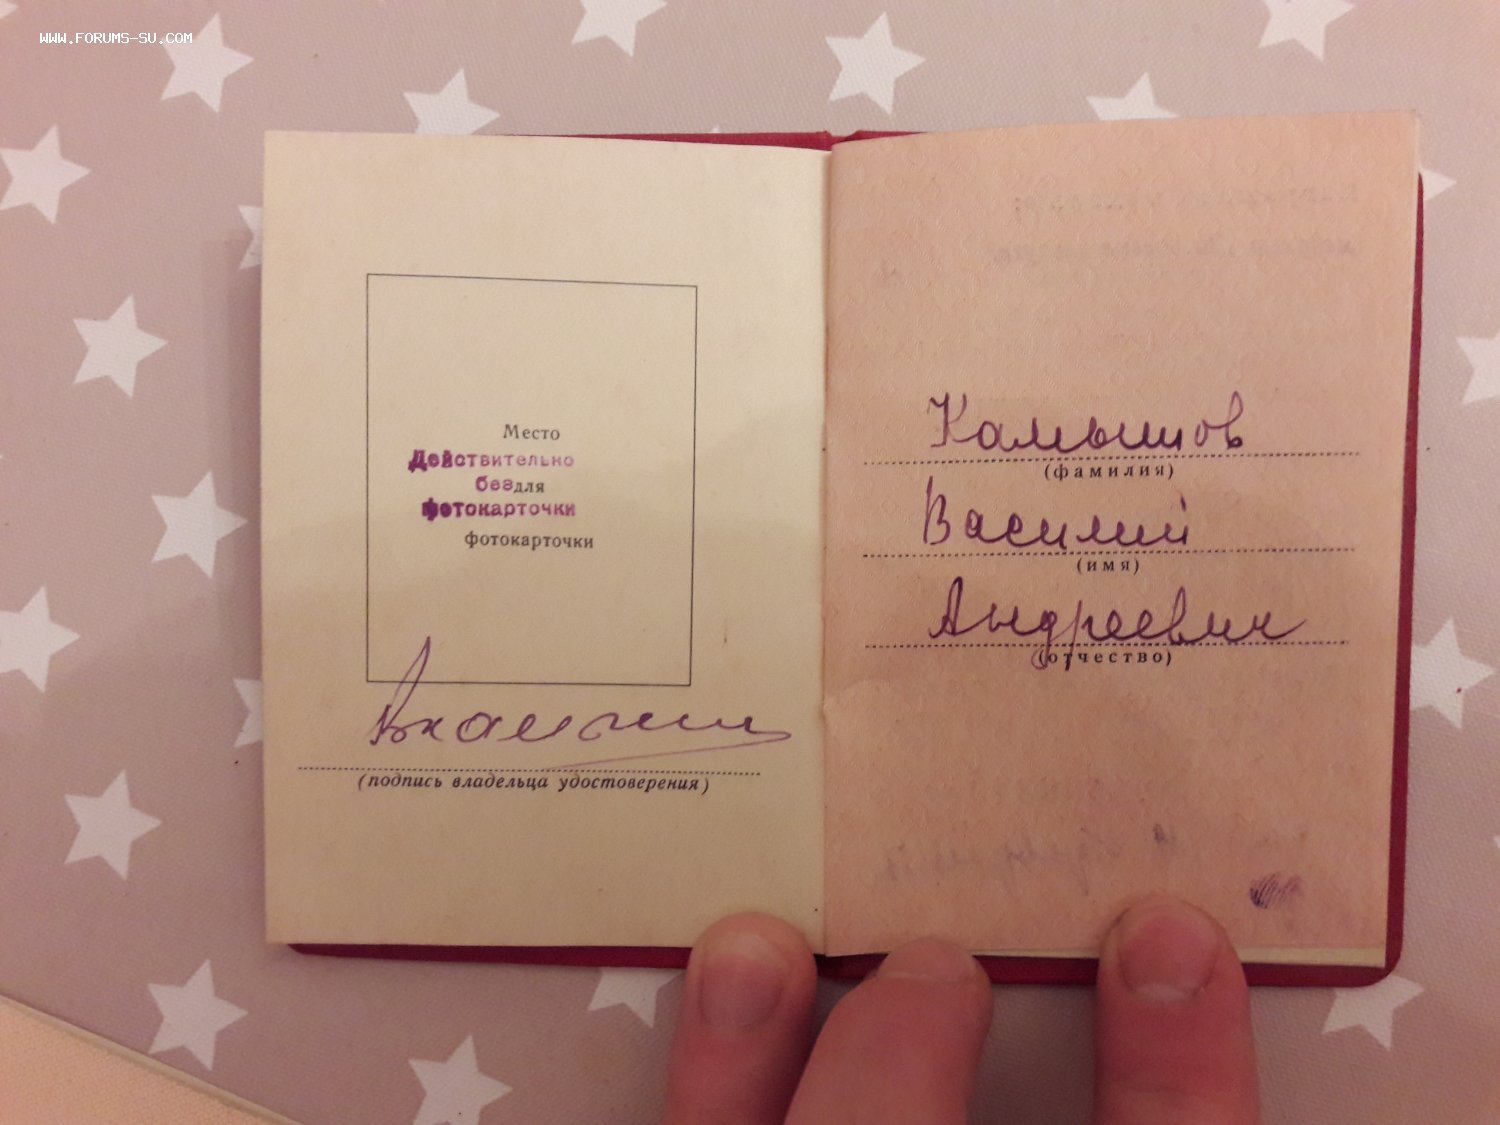 WWW.FORUMS-SU.COM
Место
Действительно
без для
фотокарточки
фотокарточки
(подпись владельца удостоверения)
Камышов
(фамилия)
Василий
(имя)
Андреевич
(отчество)